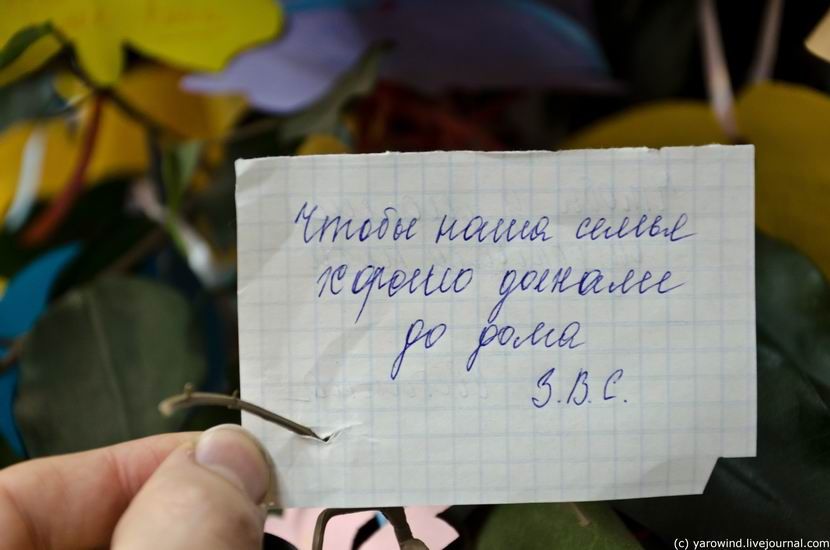 Чтобы наша семья
хорошо доехали
до дома
З.В.С.
(c) yarowind.livejournal.com